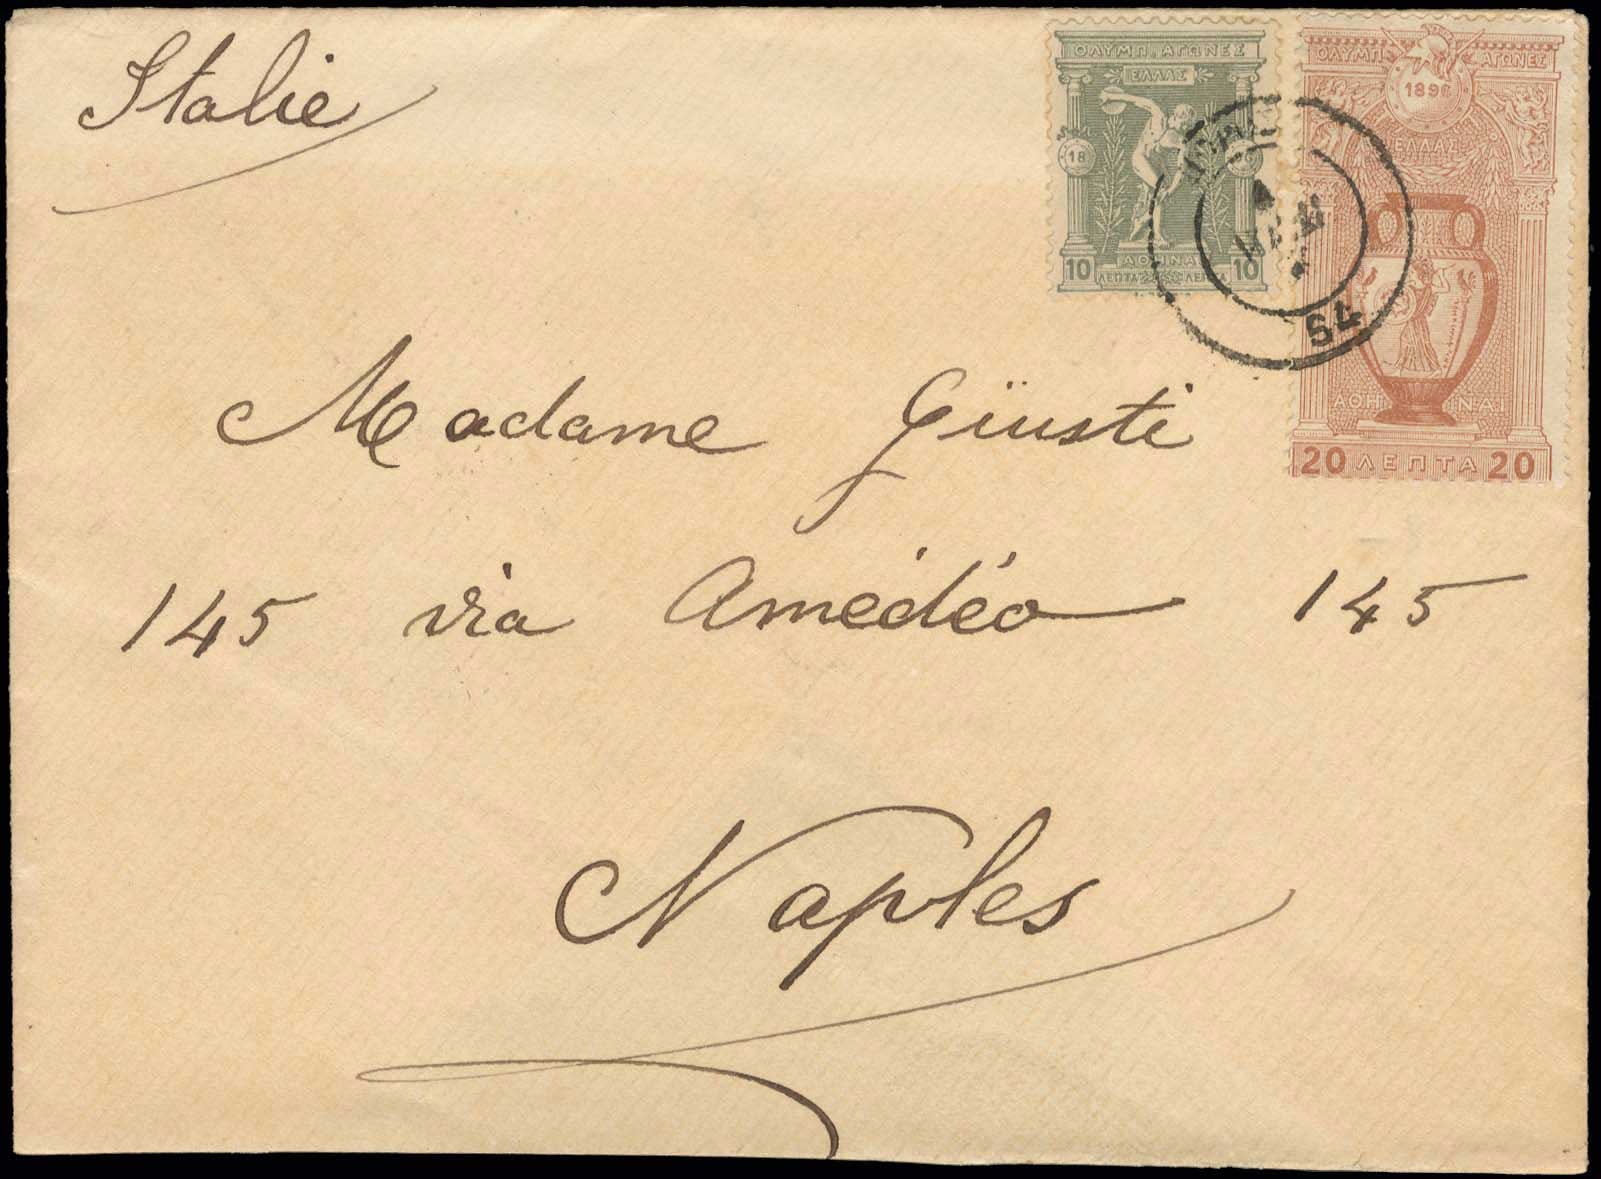 Italie
ΟΛΥΜΠ. ΑΓΩΝΕΣ
ΕΛΛΑΣ
18
ΑΘΗΝΑΙ
10 10
ΛΕΠΤΑ ΛΕΠΤΑ
ΟΛΥΜΠ ΑΓΩΝΕΣ
1896
ΕΛΛΑΣ
ΑΘΗΝΑΙ
20 ΛΕΠΤΑ 20
54
Madame Giüsti
145 via Amédéo 145
Naples